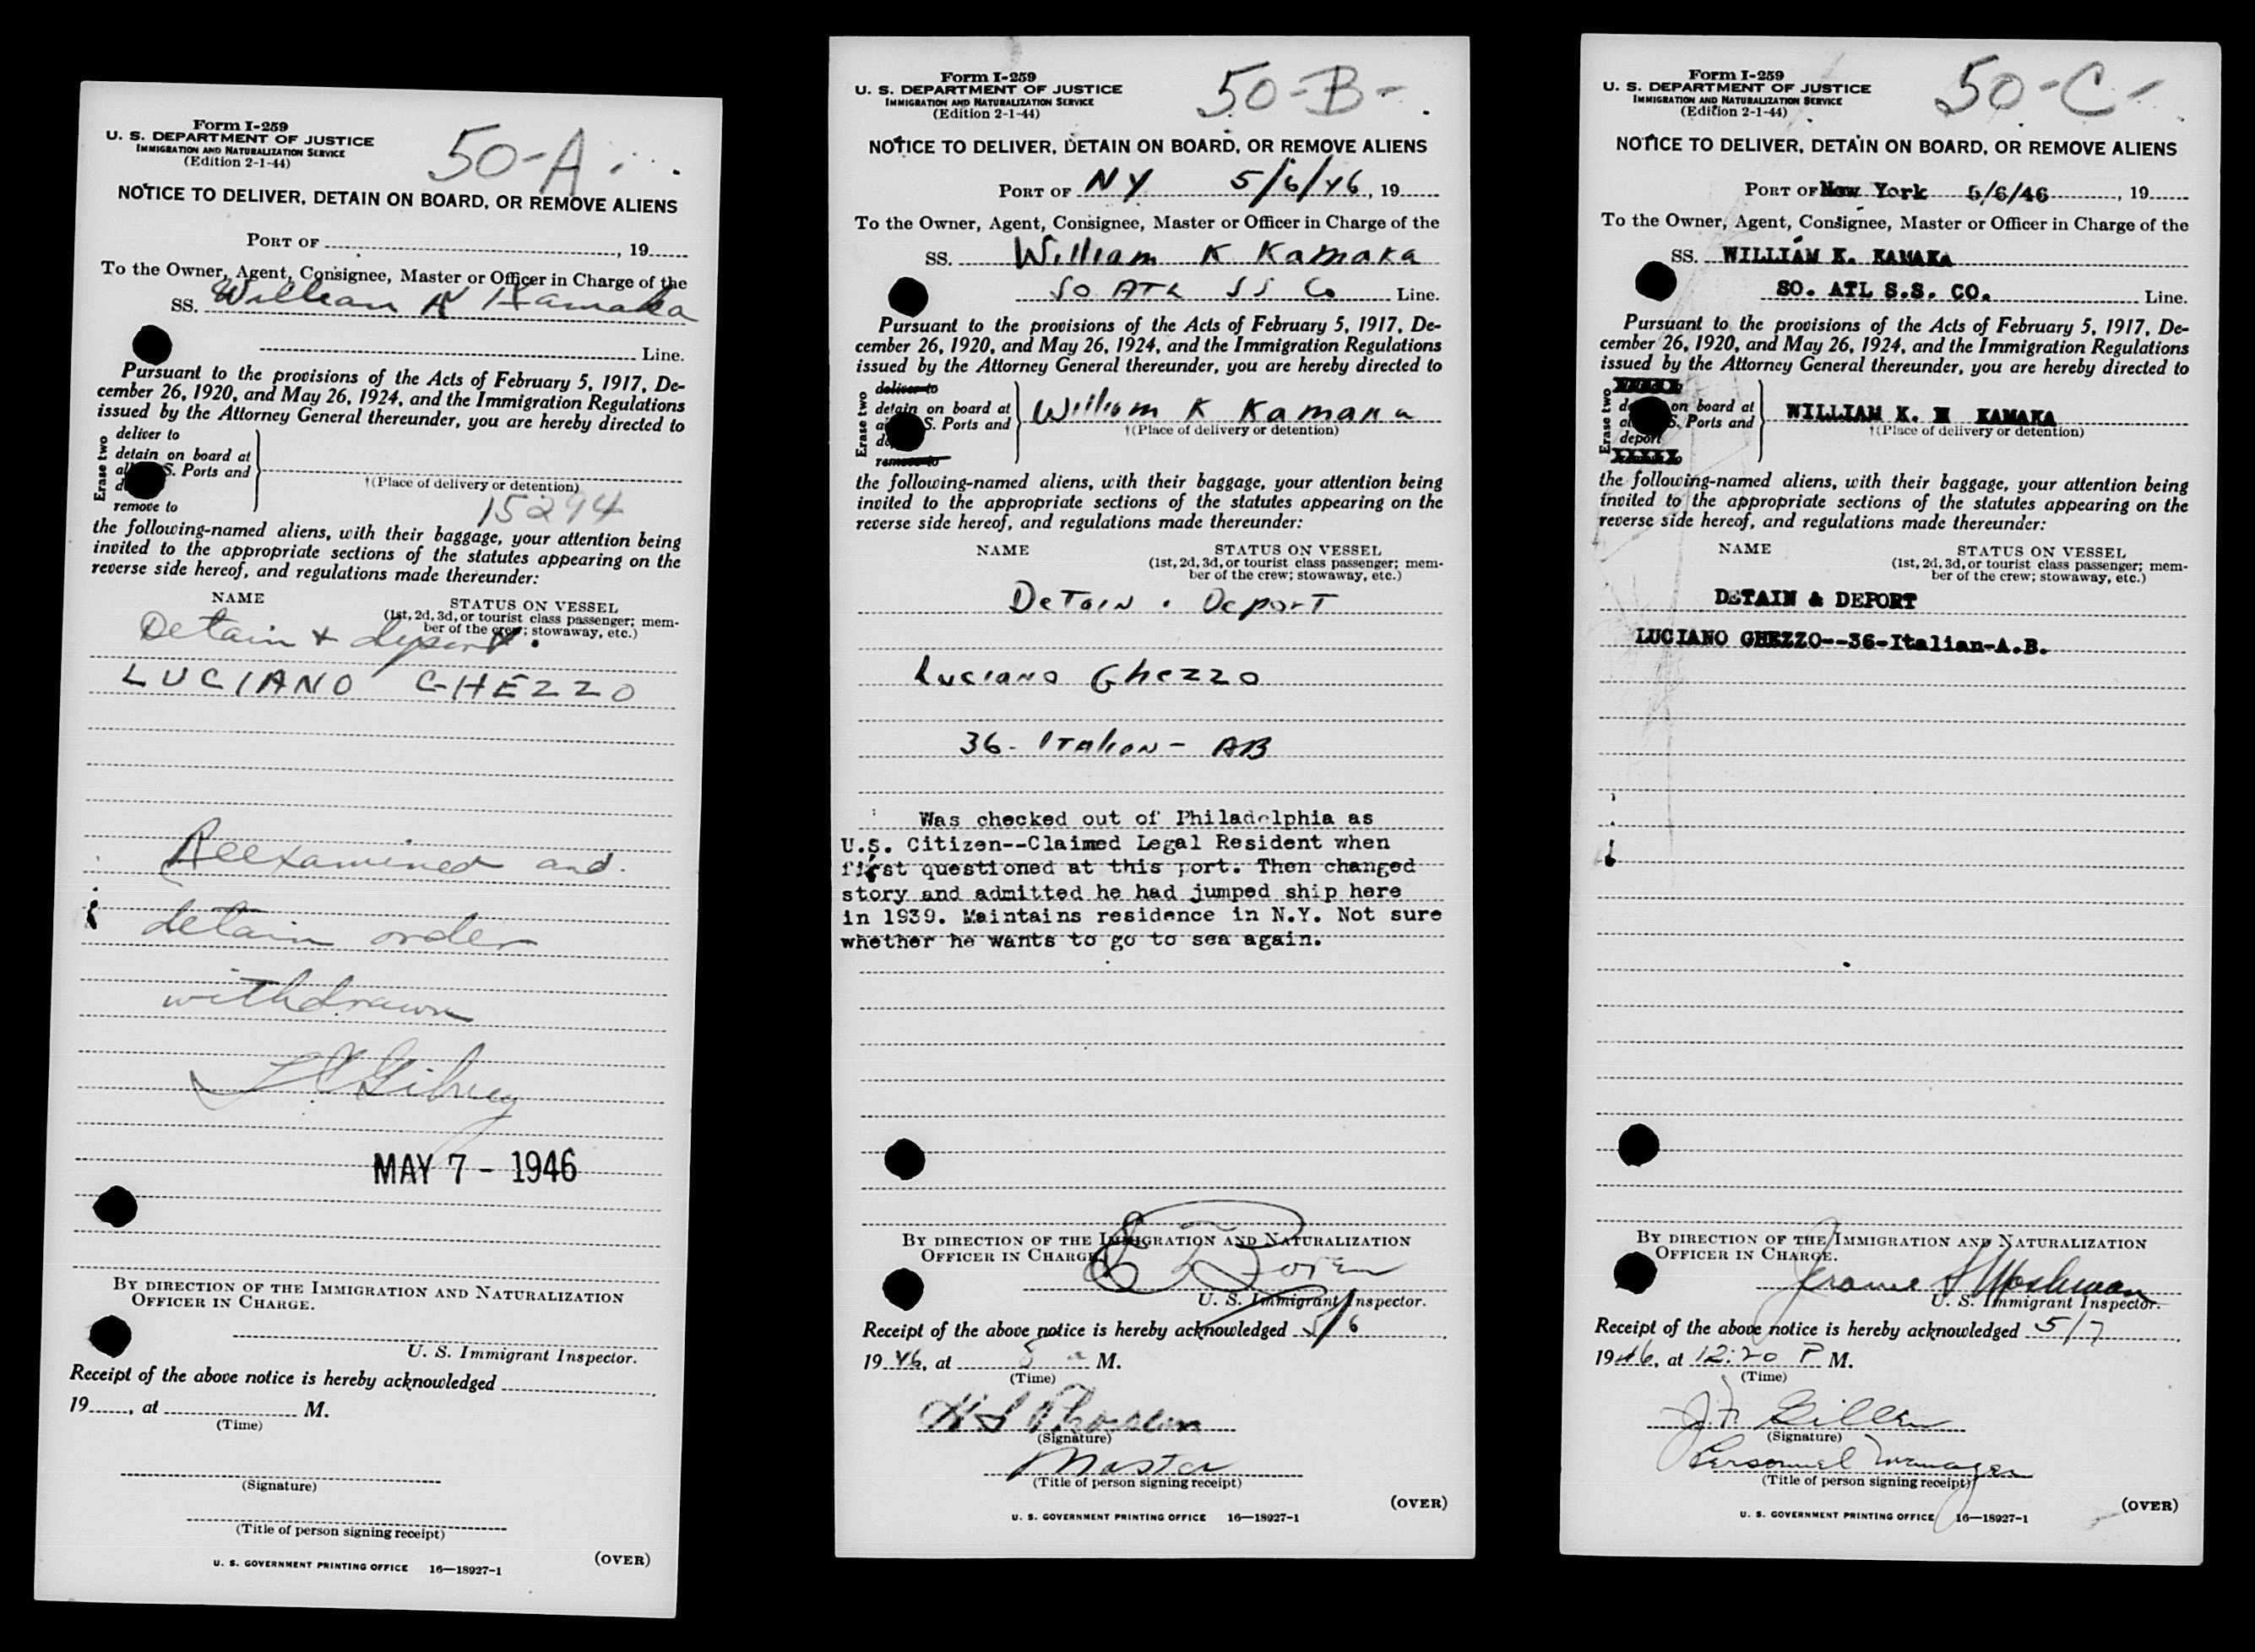 Form I-259
U. S. DEPARTMENT OF JUSTICE
IMMIGRATION AND NATURALIZATION SERVICE
(Edition 2-1-44)
50-A
NOTICE TO DELIVER, DETAIN ON BOARD, OR REMOVE ALIENS
PORT OF , 19
To the Owner, Agent, Consignee, Master or Officer in Charge of the
SS. William K Kamaka
Line.
Pursuant to the provisions of the Acts of February 5, 1917, De-
cember 26, 1920, and May 26, 1924, and the Immigration Regulations
issued by the Attorney General thereunder, you are hereby directed to
Erase two
deliver to
detain on board at
S. Ports and
remove to
†(Place of delivery or detention)
15294
the following-named aliens, with their baggage, your attention being
invited to the appropriate sections of the statutes appearing on the
reverse side hereof, and regulations made thereunder:
NAME STATUS ON VESSEL
(1st, 2d, 3d, or tourist class passenger; mem-
ber of the crew; stowaway, etc.)
Detain + deport.
LUCIANO GHEZZO
Reexamined and
detain order
withdrawn
Gibney
MAY 7 - 1946
BY DIRECTION OF THE IMMIGRATION AND NATURALIZATION
OFFICER IN CHARGE.
U. S. Immigrant Inspector.
Receipt of the above notice is hereby acknowledged
19 , at M.
(Time)
(Signature)
(Title of person signing receipt)
(OVER)
U. S. GOVERNMENT PRINTING OFFICE 16—18927-1
Form I-259
U. S. DEPARTMENT OF JUSTICE
IMMIGRATION AND NATURALIZATION SERVICE
(Edition 2-1-44)
50-B-
NOTICE TO DELIVER, DETAIN ON BOARD, OR REMOVE ALIENS
PORT OF NY 5/6/46, 19
To the Owner, Agent, Consignee, Master or Officer in Charge of the
SS. William K Kamaka
SO ATL SS Co Line.
Pursuant to the provisions of the Acts of February 5, 1917, De-
cember 26, 1920, and May 26, 1924, and the Immigration Regulations
issued by the Attorney General thereunder, you are hereby directed to
Erase two
deliver to
detain on board at
S. Ports and
remove to
William K Kamaka
†(Place of delivery or detention)
the following-named aliens, with their baggage, your attention being
invited to the appropriate sections of the statutes appearing on the
reverse side hereof, and regulations made thereunder:
NAME STATUS ON VESSEL
(1st, 2d, 3d, or tourist class passenger; mem-
ber of the crew; stowaway, etc.)
Detain . Deport
Luciano Ghezzo
36- Italian - AB
Was checked out of Philadelphia as
U.S. Citizen--Claimed Legal Resident when
first questioned at this port. Then changed
story and admitted he had jumped ship here
in 1939. Maintains residence in N.Y. Not sure
whether he wants to go to sea again.
BY DIRECTION OF THE IMMIGRATION AND NATURALIZATION
OFFICER IN CHARGE.
U. S. Immigrant Inspector.
Receipt of the above notice is hereby acknowledged 5/6
1946, at 8 a M.
(Time)
(Signature)
Master
(Title of person signing receipt)
(OVER)
U. S. GOVERNMENT PRINTING OFFICE 16—18927-1
Form I-259
U. S. DEPARTMENT OF JUSTICE
IMMIGRATION AND NATURALIZATION SERVICE
(Edition 2-1-44)
50-C-
NOTICE TO DELIVER, DETAIN ON BOARD, OR REMOVE ALIENS
PORT OF New York 5/6/46 , 19
To the Owner, Agent, Consignee, Master or Officer in Charge of the
SS. WILLIAM K. KAMAKA
SO. ATL S.S. CO. Line.
Pursuant to the provisions of the Acts of February 5, 1917, De-
cember 26, 1920, and May 26, 1924, and the Immigration Regulations
issued by the Attorney General thereunder, you are hereby directed to
Erase two
on board at
S. Ports and
deport
WILLIAM K. KAMAKA
†(Place of delivery or detention)
the following-named aliens, with their baggage, your attention being
invited to the appropriate sections of the statutes appearing on the
reverse side hereof, and regulations made thereunder:
NAME STATUS ON VESSEL
(1st, 2d, 3d, or tourist class passenger; mem-
ber of the crew; stowaway, etc.)
DETAIN & DEPORT
LUCIANO GHEZZO--36-Italian-A.B.
BY DIRECTION OF THE IMMIGRATION AND NATURALIZATION
OFFICER IN CHARGE.
Jerome
U. S. Immigrant Inspector.
Receipt of the above notice is hereby acknowledged 5/7
1946, at 12:20 P M.
(Time)
(Signature)
Personnel Manager
(Title of person signing receipt)
(OVER)
U. S. GOVERNMENT PRINTING OFFICE 16—18927-1